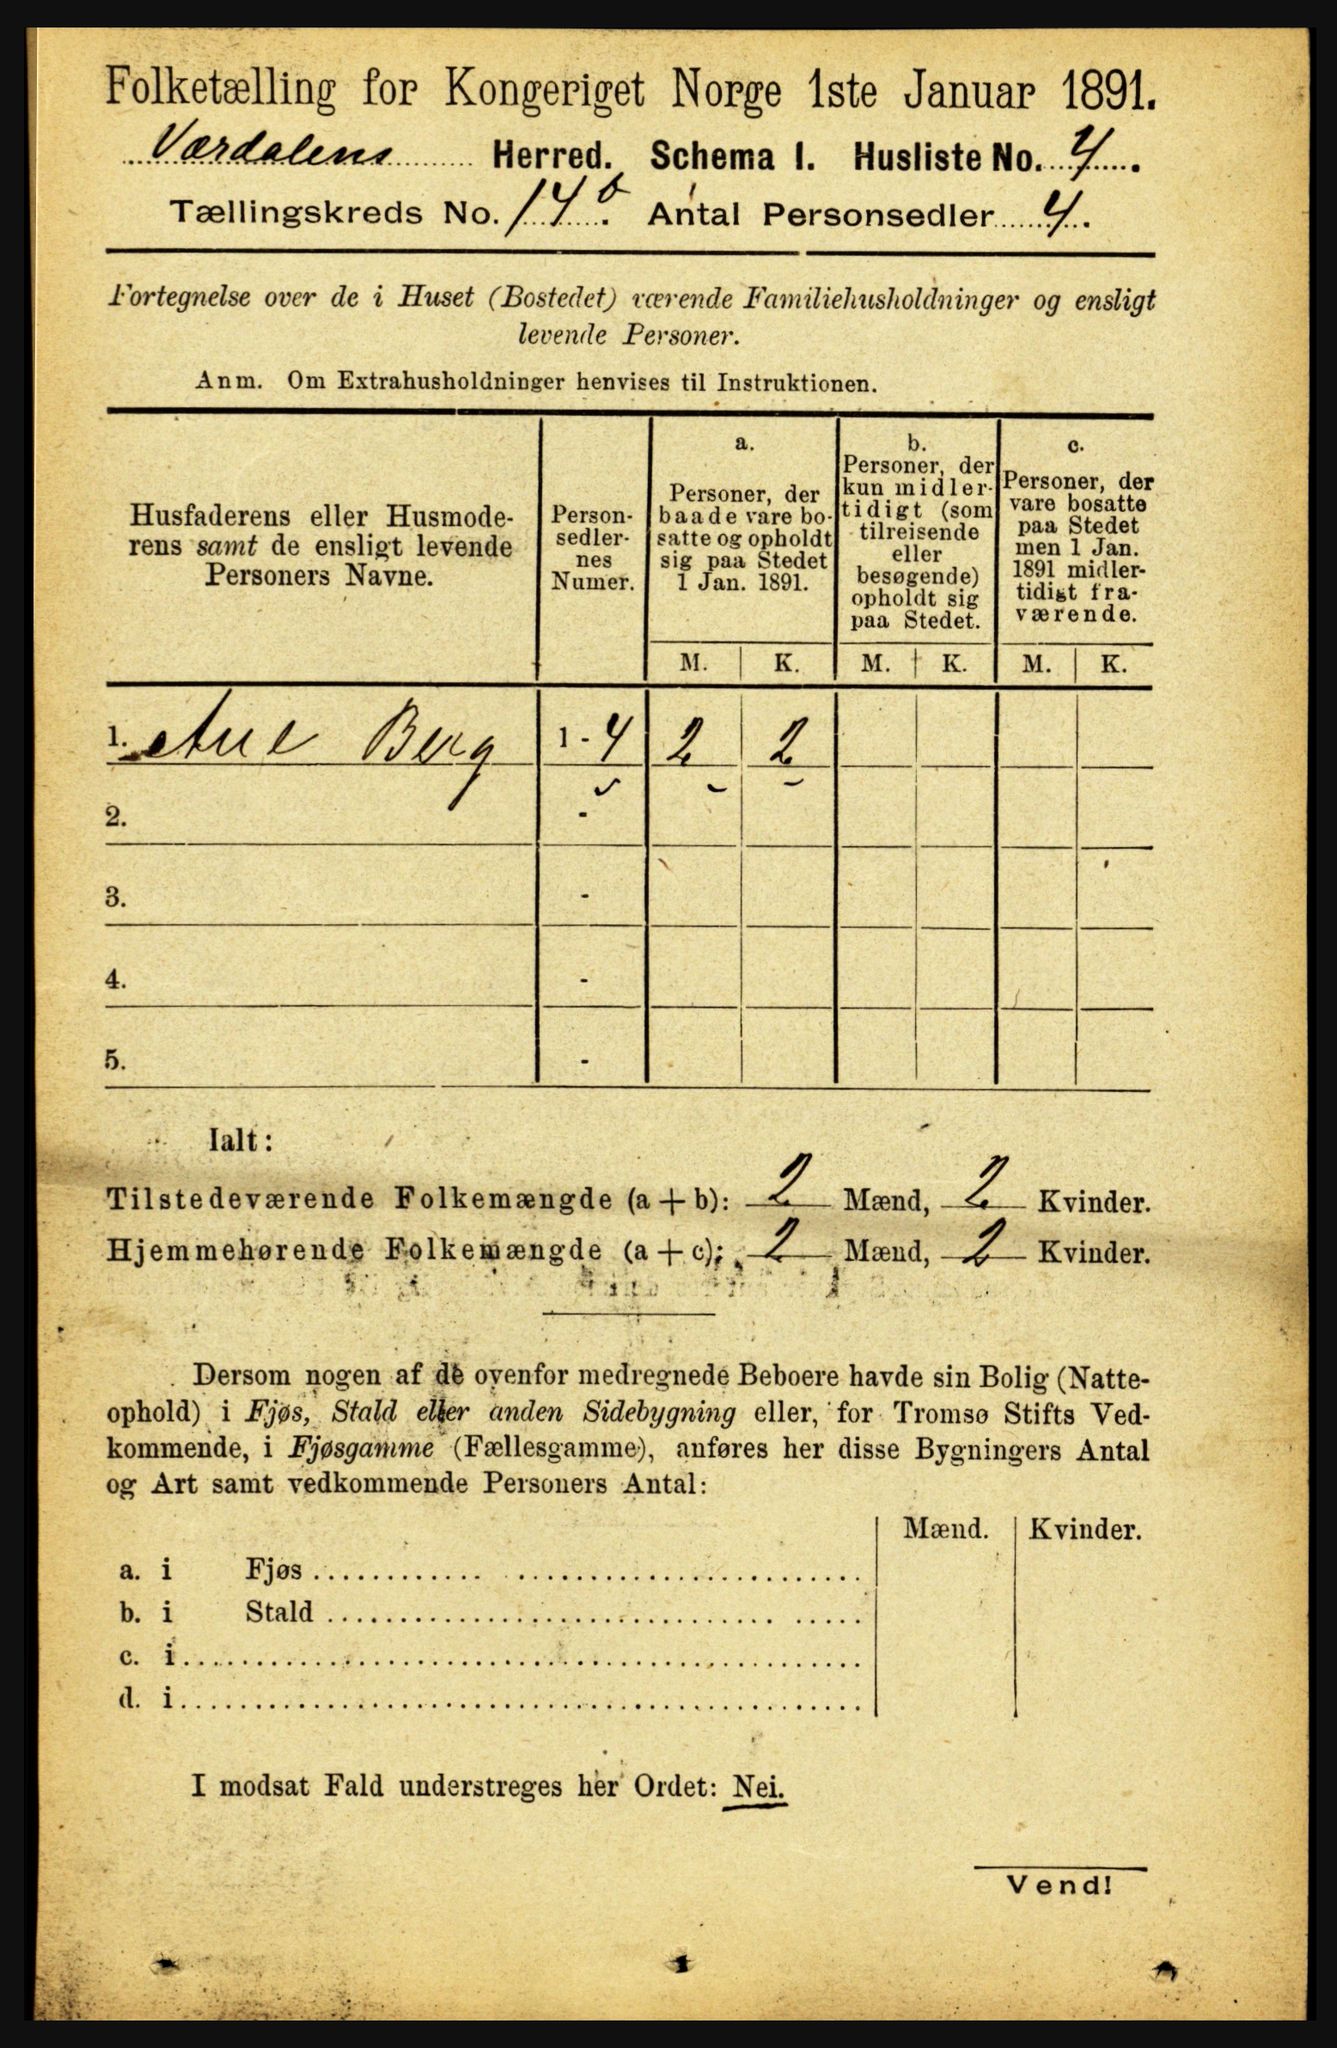 Folketælling for Kongeriget Norge 1ste Januar 1891.
Værdalens Herred. Schema 1. Husliste No. 4.
Tællingskreds No. 14 b. Antal Personsedler 4.
Fortegnelse over de i Huset (Bostedet) værende Familiehusholdninger og ensligt
levende Personer.
Anm. Om Extrahusholdninger henvises til Instruktionen.
Husfaderens eller Husmode-
rens samt de ensligt levende
Personers Navne.
Person-
sedler-
nes
Numer.
a.
Personer, der
baade vare bo-
satte og opholdt
sig paa Stedet
1 Jan. 1891.
b.
Personer, der
kun midler-
tidigt (som
tilreisende
eller
besøgende)
opholdt sig
paa Stedet.
c.
Personer, der
vare bosatte
paa Stedet
men 1 Jan.
1891 midler-
tidigt fra-
værende.
M. K. M. K. M. K.
1. Berg 1 - 4 2 2
2. -
3. -
4. -
5. -
Ialt:
Tilstedeværende Folkemængde (a + b): 2 Mænd, 2 Kvinder.
Hjemmehørende Folkemængde (a + c): 2 Mænd, 2 Kvinder.
Dersom nogen af de ovenfor medregnede Beboere havde sin Bolig (Natte-
ophold) i Fjøs, Stald eller anden Sidebygning eller, for Tromsø Stifts Ved-
kommende, i Fjøsgamme (Fællesgamme), anføres her disse Bygningers Antal
og Art samt vedkommende Personers Antal:
Mænd. Kvinder.
a. i Fjøs
b. i Stald
c. i
d. i
I modsat Fald understreges her Ordet: Nei.
Vend!